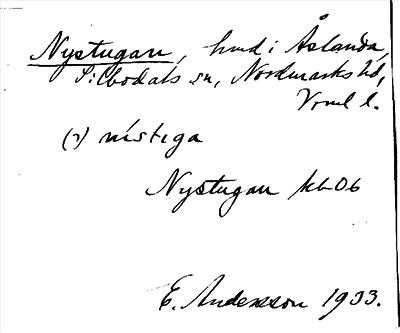 Nystugan, hmd i Åslanda,
Silbodals sn, Nordmarks hd,
Vrml l.
(2) nístiga
Nystugan kb 06
E. Andersson 1933.